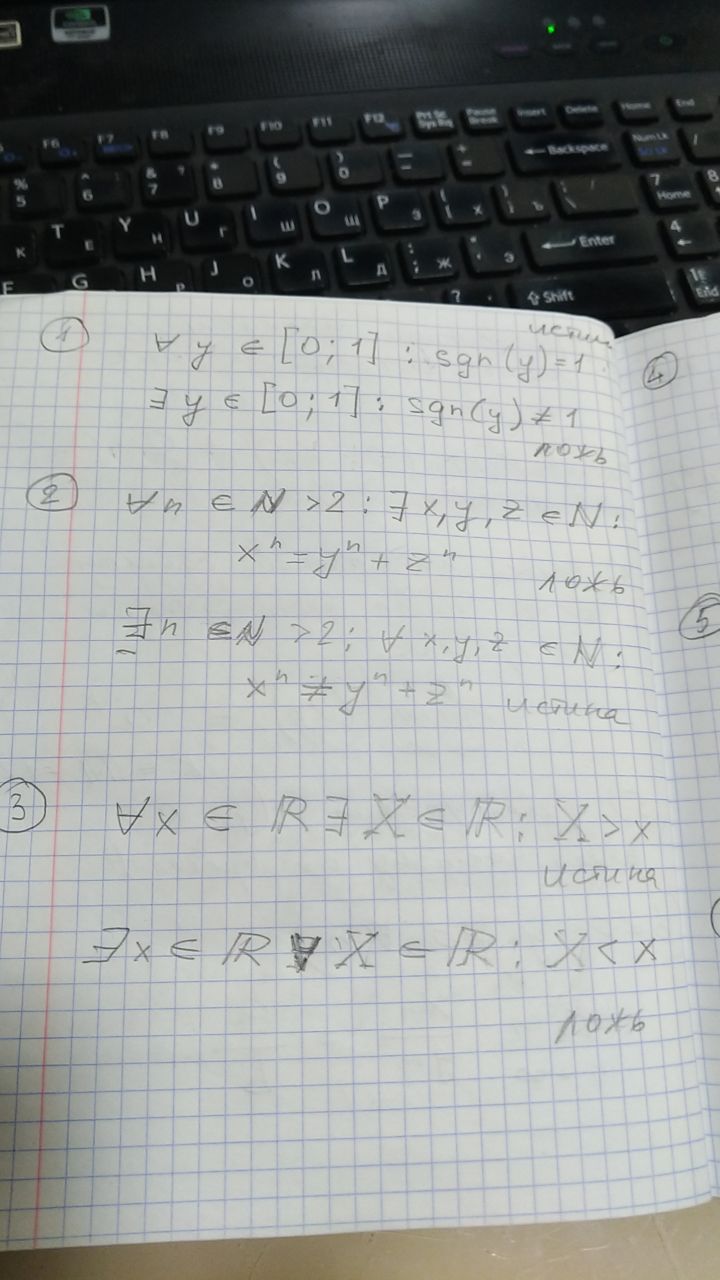 F6 F7 F8 F9 F10 F11 F12 Prt Sc Sys Rq Pause Break Insert Delete Home End
% 5 ^ 6 & ? 7 * 8 ( 9 ) 0 — + = Backspace Num Lk 7 Home 8
К T Е Y Н U Г I Ш O Щ P З { [ Х } ] Ъ Enter 4
F G H Р J О K Л L Д : ; Ж " ' Э
? Shift 1 End
① ∀ y ∈ [0; 1] : sgn(y)=1
∃ y ∈ [0; 1] : sgn(y) ≠ 1
ложь
② ∀n ∈ N >2 : ∃ x, y, z ∈ N :
xⁿ = yⁿ + zⁿ
ложь
∃n ∈ N >2 : ∀ x, y, z ∈ N :
xⁿ ≠ yⁿ + zⁿ истина
③ ∀x ∈ ℝ ∃ X ∈ ℝ : X > x
истина
∃x ∈ ℝ ∀ X ∈ ℝ : X < x
ложь
④
⑤